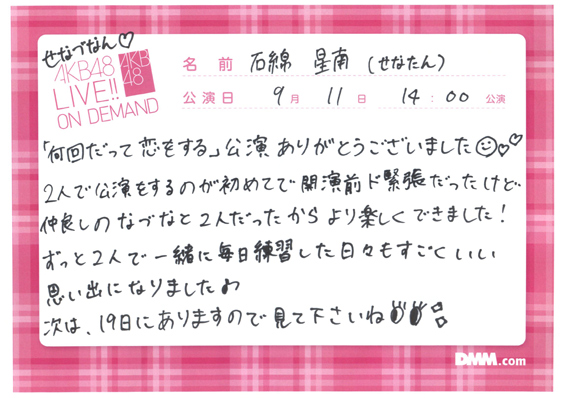 せなづなん♡
AKB48
LIVE!!
ON DEMAND
AKB
48
名 前 石綿 星南 (せなたん)
公演日 9月 11日 14:00 公演
「何回だって恋をする」公演 ありがとうございました☺♡♡
2人で公演をするのが初めてで開演前ド緊張だったけど
仲良しのなづなと2人だったからより楽しくできました!
ずっと2人で一緒に毎日練習した日々もすごくいい
思い出になりました♪
次は、19日にありますので見て下さいね
DMM.com